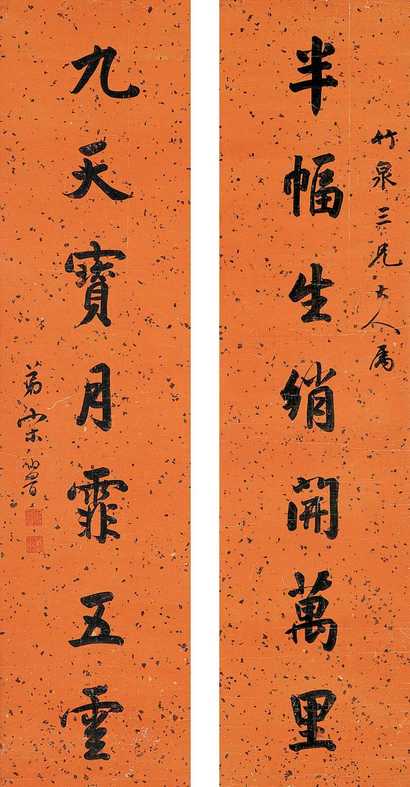 竹泉三兄大人屬
半幅生綃開萬里
九天寶月霏五雲
弟宋伯魯